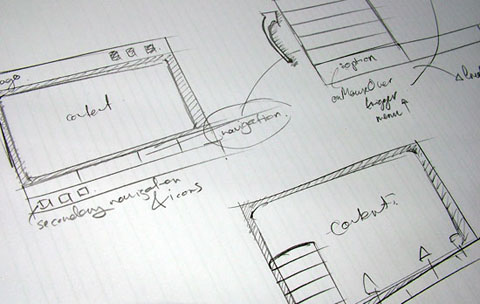 content
navigation
secondary navigation
& icons
option
onMouseOver
trigger
menu
content